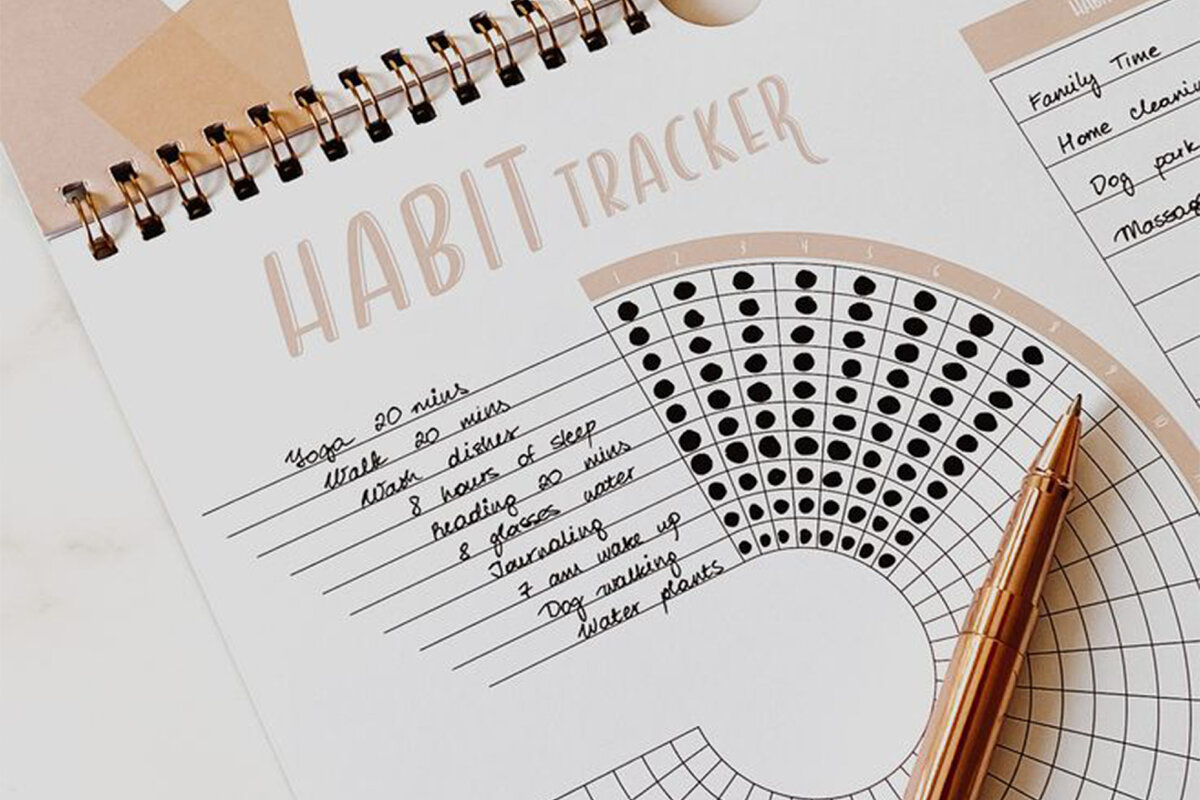 HABIT TRACKER
1 2 3 4 5 6 7 8 9 10
Yoga 20 mins
Walk 20 mins
Wash dishes
8 hours of sleep
Reading 20 mins
8 glasses water
Journaling
7 am wake up
Dog walking
Water plants
Family Time
Home
Dog park